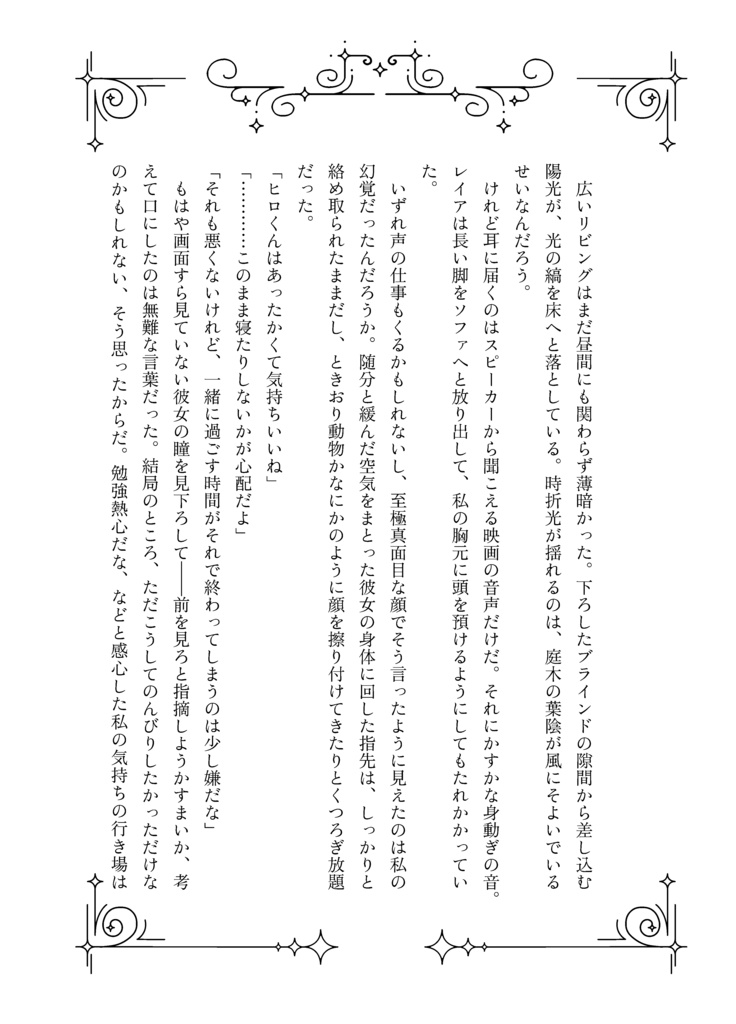 広いリビングはまだ昼間にも関わらず薄暗かった。下ろしたブラインドの隙間から差し込む
陽光が、光の縞を床へと落としている。時折光が揺れるのは、庭木の葉陰が風にそよいでいる
せいなんだろう。
　けれど耳に届くのはスピーカーから聞こえる映画の音声だけだ。それにかすかな身動ぎの音。
レイアは長い脚をソファへと放り出して、私の胸元に頭を預けるようにしてもたれかかってい
た。
　いずれ声の仕事もくるかもしれないし、至極真面目な顔でそう言ったように見えたのは私の
幻覚だったんだろうか。随分と緩んだ空気をまとった彼女の身体に回した指先は、しっかりと
絡め取られたままだし、ときおり動物かなにかのように顔を擦り付けてきたりとくつろぎ放題
だった。
「ヒロくんはあったかくて気持ちいいね」
「…………このまま寝たりしないか心配だよ」
「それも悪くないけれど、一緒に過ごす時間がそれで終わってしまうのは少し嫌だな」
　もはや画面すら見ていない彼女の瞳を見下ろして――前を見ろと指摘しようかすまいか、考
えて口にしたのは無難な言葉だった。結局のところ、ただこうしてのんびりしたかっただけな
のかもしれない、そう思ったからだ。勉強熱心だな、などと感心した私の気持ちの行き場は